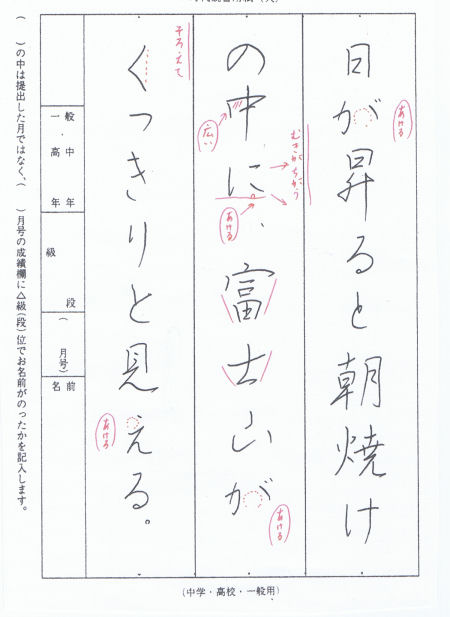 日が昇ると朝焼け
の中に、富士山が
くっきりと見える。
あける
むきがちがう
広い
あける
あける
そろえて
あける
一般・高中年年
級段
(月号)
名前
( )の中は提出した月ではなく、( )月号の成績欄に△級(段)位でお名前がのったかを記入します。
(中学・高校・一般用)